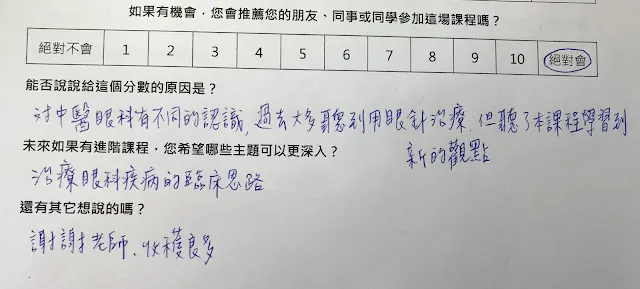 如果有機會，您會推薦您的朋友、同事或同學參加這場課程嗎？
絕對不會 1 2 3 4 5 6 7 8 9 10 絕對會
能否說說給這個分數的原因是？
對中醫眼科有不同的認識，過去大多聽到用眼針治療，但聽了本課程學習到
新的觀點
未來如果有進階課程，您希望哪些主題可以更深入？
治療眼科疾病的臨床思路
還有其它想說的嗎？
謝謝老師、收穫良多